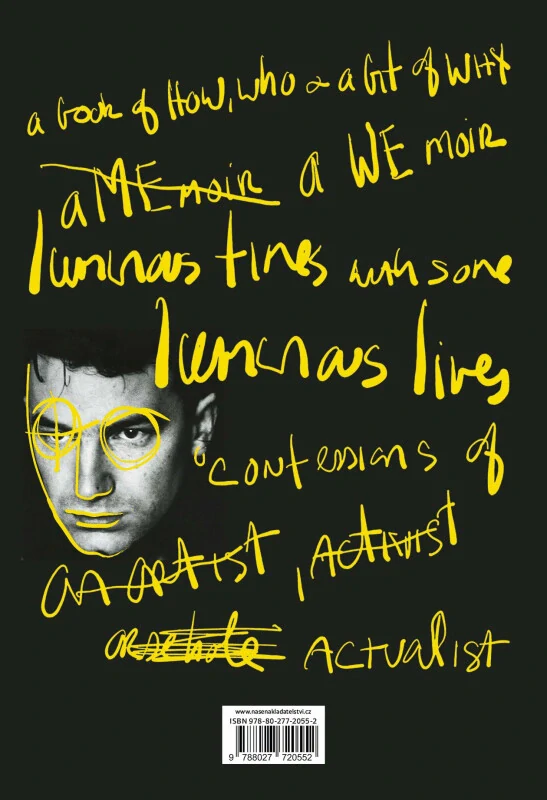 a book of How, who & a bit of WHY
a MEmoir a WE moir
luminous times with some
luminous lives
confessions of
an artist, activist
arsehole ACTUALIST
www.nasenakladatelstvi.cz
ISBN 978-80-277-2055-2
9 788027 720552